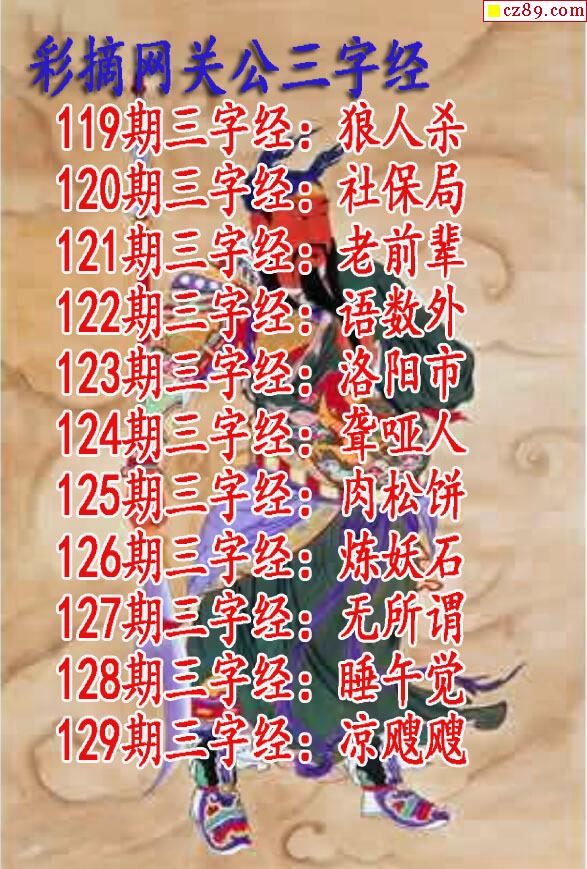 cz89.com
彩摘网关公三字经
119期三字经：狼人杀
120期三字经：社保局
121期三字经：老前辈
122期三字经：语数外
123期三字经：洛阳市
124期三字经：聋哑人
125期三字经：肉松饼
126期三字经：炼妖石
127期三字经：无所谓
128期三字经：睡午觉
129期三字经：凉飕飕